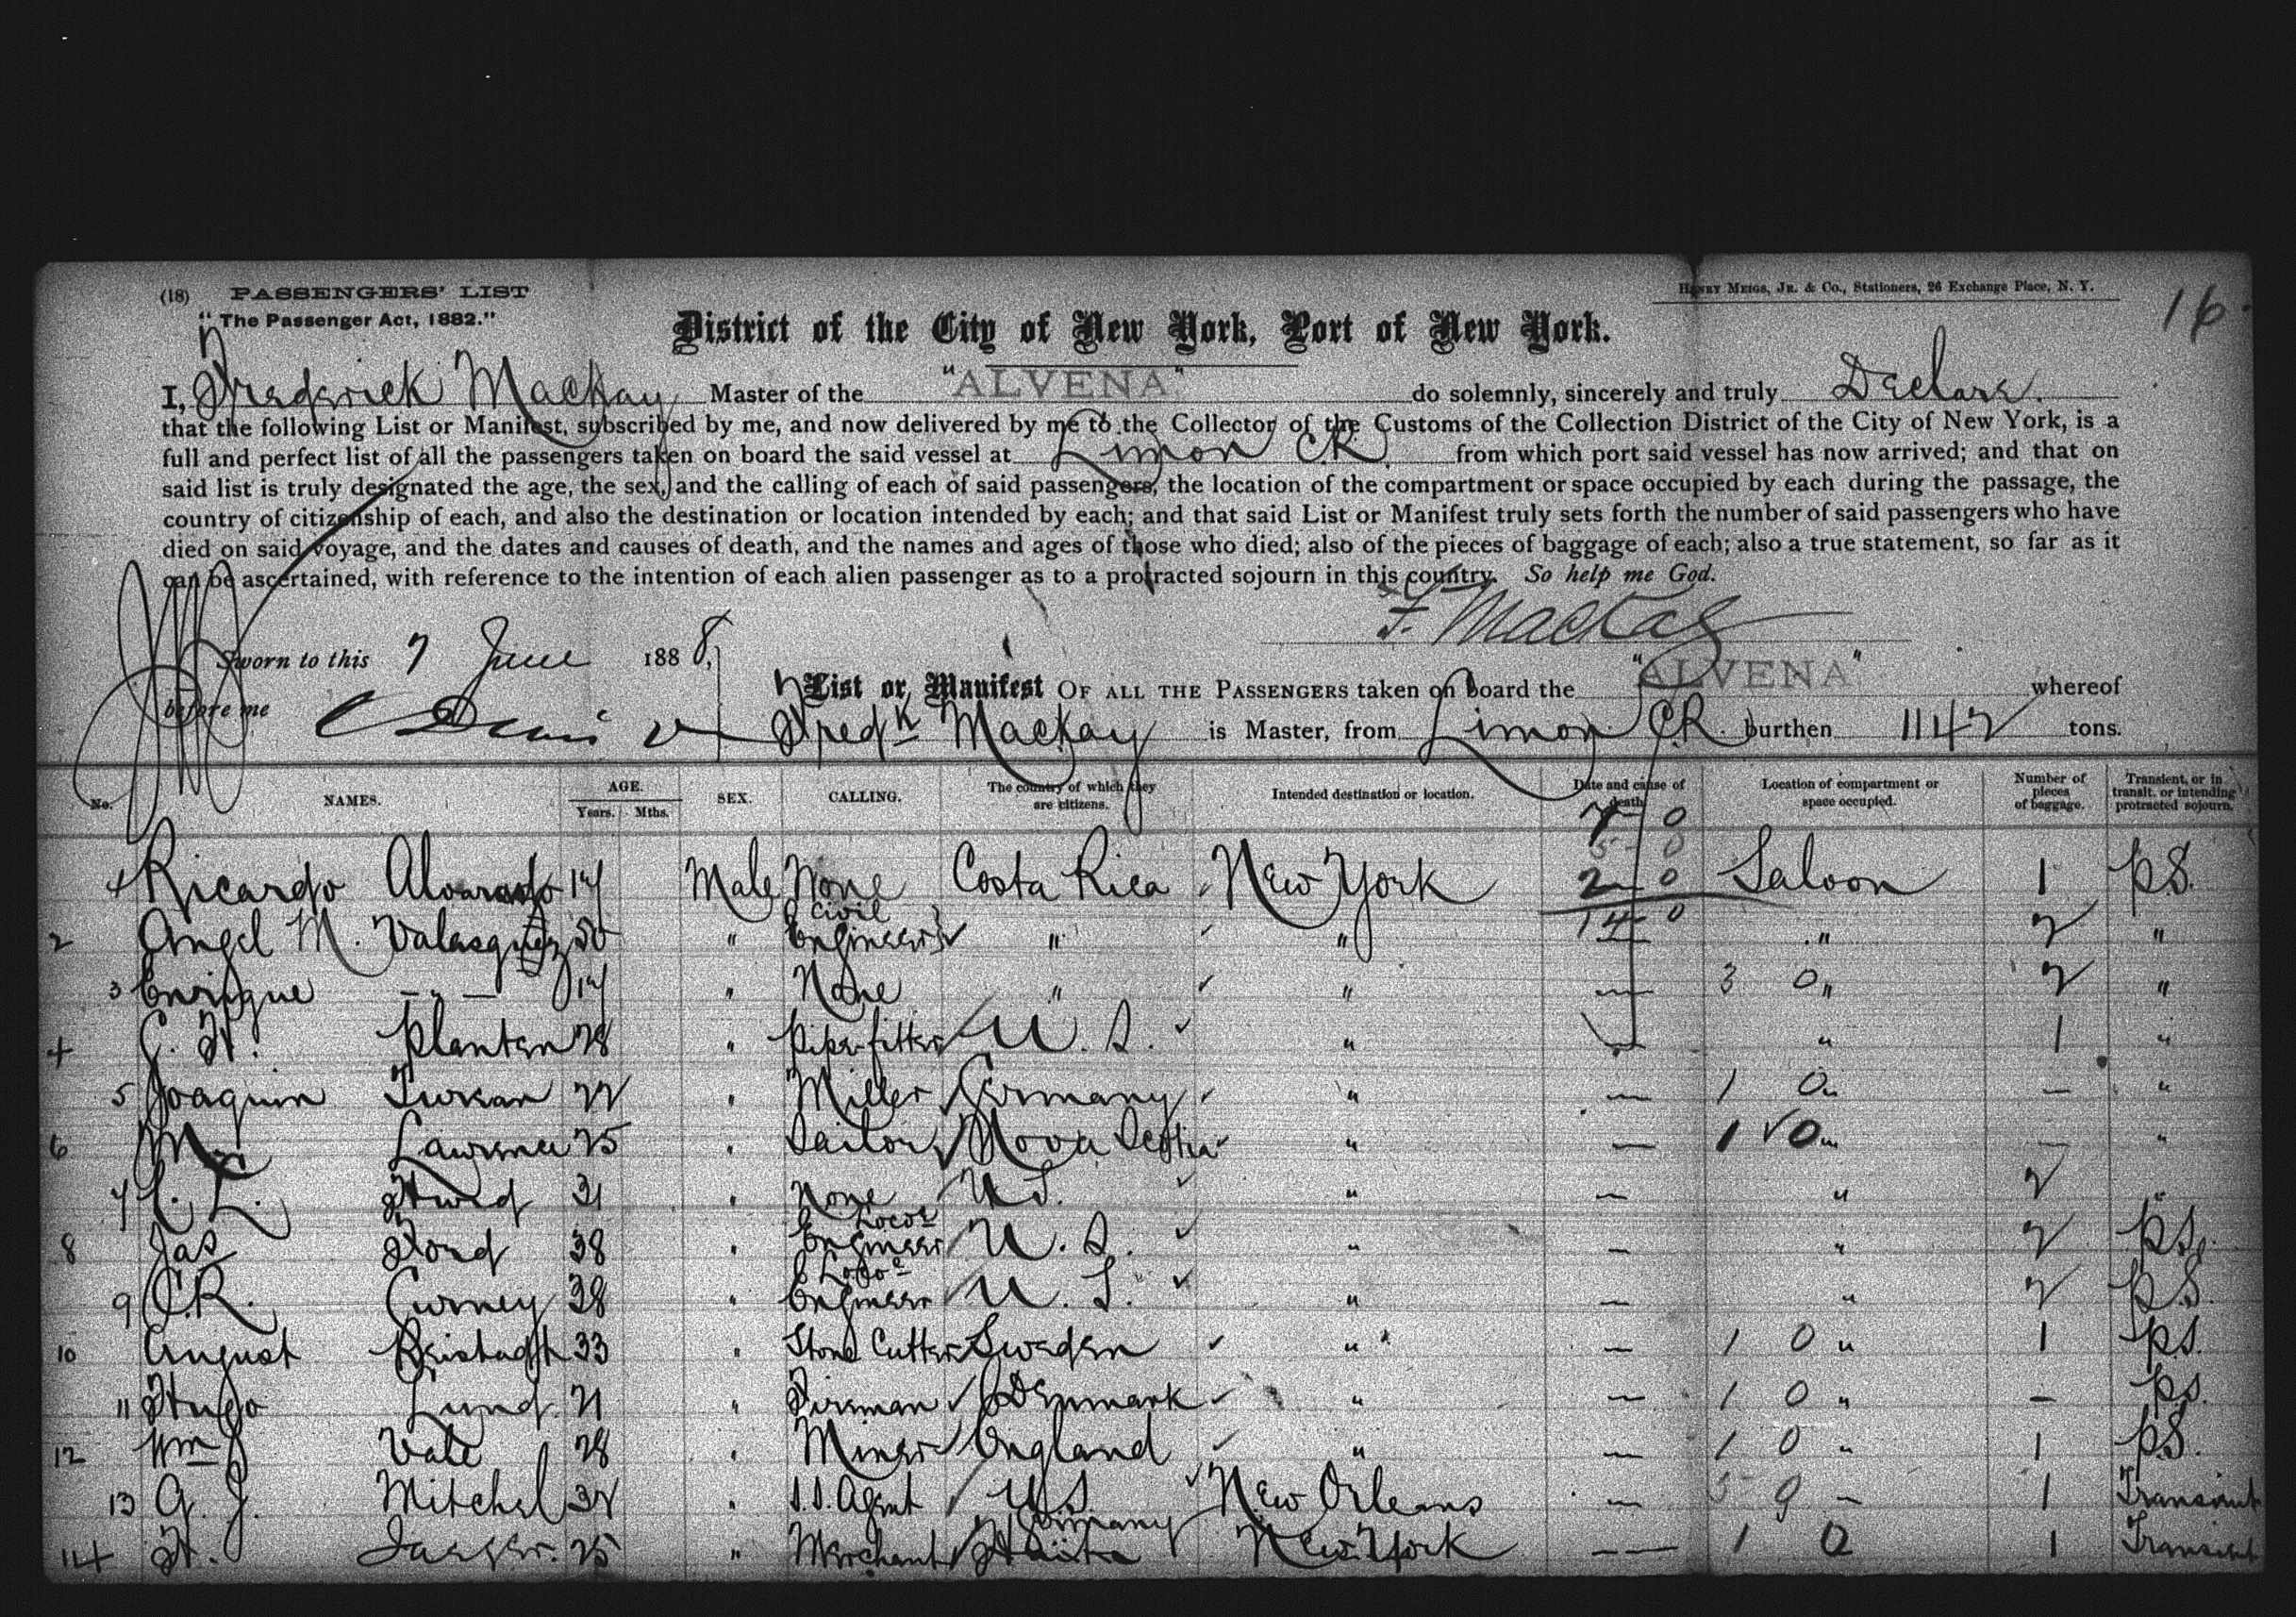 (18) PASSENGERS' LIST
HENRY MEIGS, JR. & CO., Stationers, 26 Exchange Place, N. Y.
16
"The Passenger Act, 1882."
District of the City of New York, Port of New York.
I, Frederick Mackay Master of the "ALVENA" do solemnly, sincerely and truly Declare.
that the following List or Manifest, subscribed by me, and now delivered by me to the Collector of the Customs of the Collection District of the City of New York, is a
full and perfect list of all the passengers taken on board the said vessel at Limon C.R. from which port said vessel has now arrived; and that on
said list is truly designated the age, the sex, and the calling of each of said passengers, the location of the compartment or space occupied by each during the passage, the
country of citizenship of each, and also the destination or location intended by each; and that said List or Manifest truly sets forth the number of said passengers who have
died on said voyage, and the dates and causes of death, and the names and ages of those who died; also of the pieces of baggage of each; also a true statement, so far as it
can be ascertained, with reference to the intention of each alien passenger as to a protracted sojourn in this country. So help me God.
F. Mackay
Sworn to this 7 June 1888,
before me
List or Manifest OF ALL THE PASSENGERS taken on board the "ALVENA" whereof
Fredk Mackay is Master, from Limon C.R. burthen 1142 tons.
No. NAMES. AGE. Years. Mths. SEX. CALLING. The country of which they are citizens. Intended destination or location. Date and cause of death. Location of compartment or space occupied. Number of pieces of baggage. Transient, or in transit, or intending protracted sojourn.
1 Ricardo Alvarado 17 Male None Costa Rica New York 2 0 Saloon 1 p.S.
2 Angel M. Valasquez 50 " Civil Engineer " " 14 0 " 2 "
3 Enrique — " — 17 " None " " — 3 0 " 2 "
4 C. H. Planten 28 " Pipe fitter U. S. " — " 1 "
5 Joaquin 22 " Miller Germany " — 1 0 " — "
6 M. Lawrence 25 " Sailor Nova Scotia " — 1 0 " — "
7 C. L. 31 " None U.S. " — " 2 "
8 Jas Ford 38 " Loco Engineer U. S. " — " 2 p.S.
9 C.R. Curney 38 " Loco Engineer U. S. " — " 2 p.S.
10 August 33 " Stone Cutter Sweden " — 1 0 " 1 p.S.
11 Hugo Lund 21 " Fireman Denmark " — 1 0 " — p.S.
12 Wm Vale 28 " Miner England " — 1 0 " 1 p.S.
13 A. J. Mitchel 32 " S.S. Agent U.S. New Orleans — 1 Transient
14 H. Jaeger. 25 " Merchant Germany New York — — 1 0 1 Transient